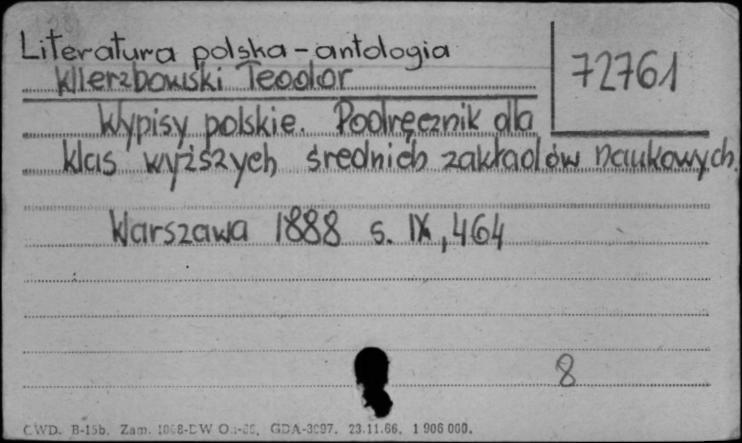 Literatura polska – antologia
72761
Wierzbowski Teodor
Wypisy polskie. Podręcznik dla
klas wyższych średnich zakładów naukowych.
Warszawa 1888 s. IX, 464
8
CWD. B-15b. Zam. GDA-3097. 23.11.66. 1 906 000.